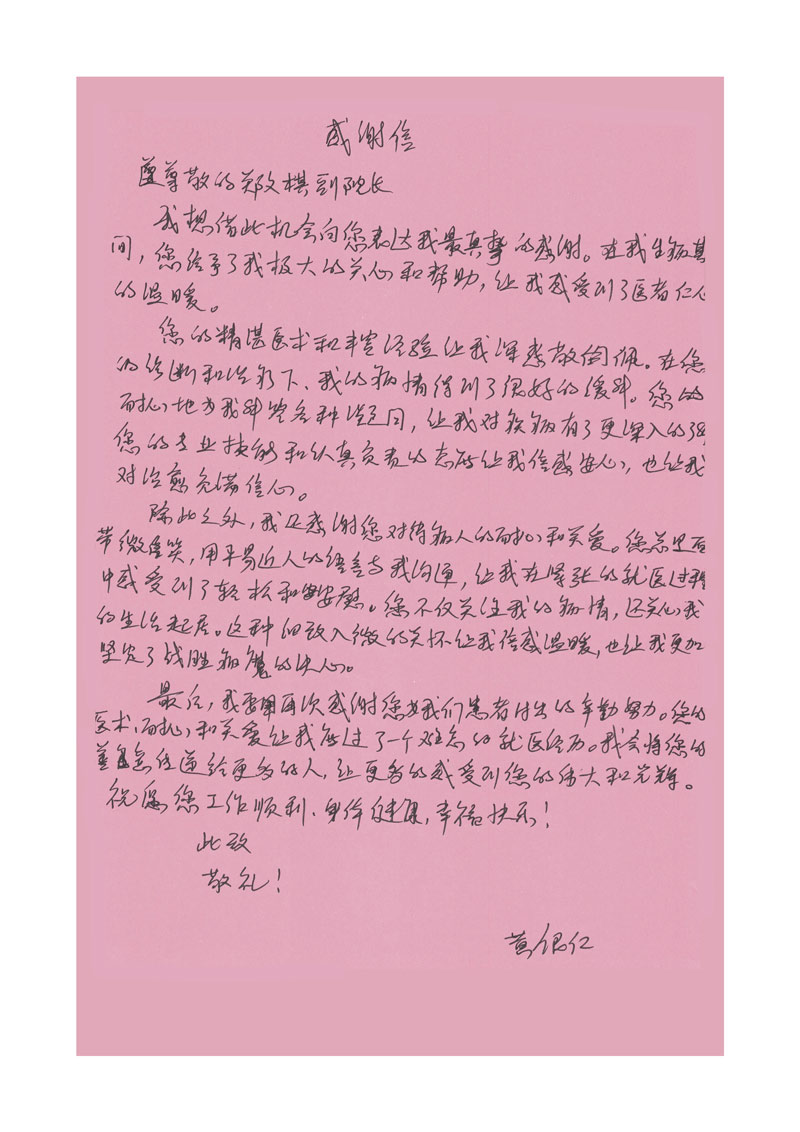 感谢信
尊敬的郑文棋副院长
我想借此机会向您表达我最真挚的感谢。在我生病其
间，您给予了我极大的关心和帮助，让我感受到了医者仁心
的温暖。
您的精湛医术和丰富经验让我深感敬佩。在您
的诊断和治疗下、我的病情得到了很好的缓解。您的
耐心地为我解答各种问，让我对疾病有了更深入的
您的专业技能和认真负责的态度让我倍感安心，也让我
对治愈充满信心。
除此之外，我还感谢您对待病人的耐心和关爱。您总是面
带微笑，用平易近人的语言与我沟通，让我在紧张的就医过程
中感受到了轻松和安慰。您不仅关注我的病情，还关心我
的生活起居。这种细致入微的关怀让我倍感温暖，也让我更加
坚定了战胜病魔的决心。
最后，我要再次感谢您为我们患者付出的辛勤努力。您的
医术、耐心和关爱让我度过了一个难忘的就医经历。我会将您的
善意传递给更多的人，让更多的感受到您的伟大和光辉。
祝愿您工作顺利、身体健康，幸福快乐！
此致
敬礼！
黄银仁